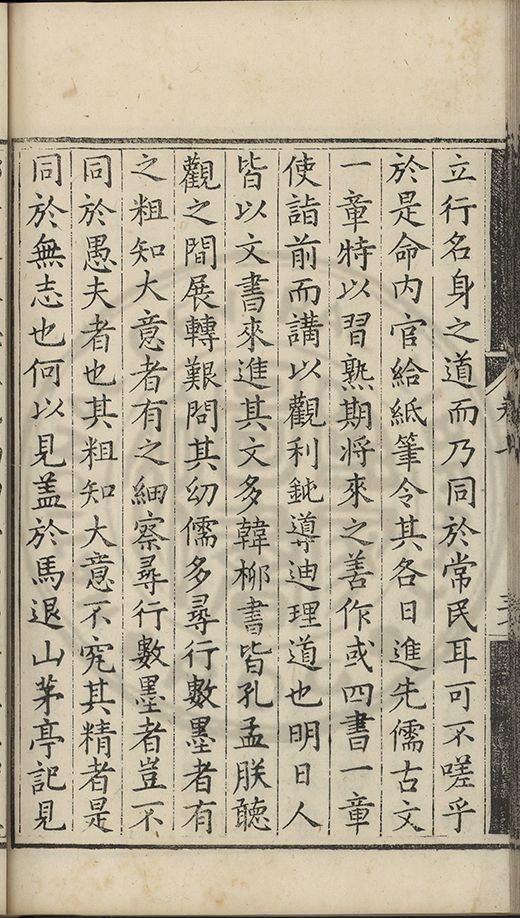 立行名身之道而乃同於常民耳可不嗟乎
於是命內官給紙筆令其各日進先儒古文
一章特以習熟期將來之善作或四書一章
使詣前而講以觀利鈍導迪理道也明日人
皆以文書來進其文多韓柳書皆孔孟朕聽
觀之間展轉艱問其幼儒多尋行數墨者有
之粗知大意者有之細察尋行數墨者豈不
同於愚夫者也其粗知大意不究其精者是
同於無志也何以見盖於馬退山茅亭記見